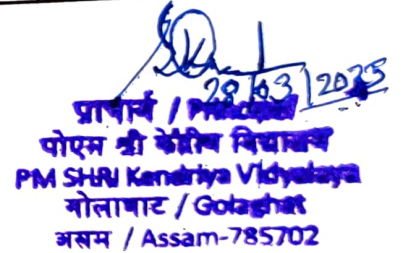 28/03/2025
प्राचार्य / Principal
पीएम श्री केंद्रीय विद्यालय
PM SHRI Kendriya Vidyalaya
गोलाघाट / Golaghat
असम / Assam-785702